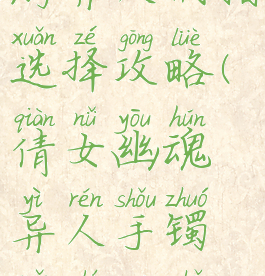 xuǎn zé gōng lüè
选择攻略(
qiàn nǚ yōu hún
倩女幽魂
yì rén shǒu zhuó
异人手镯